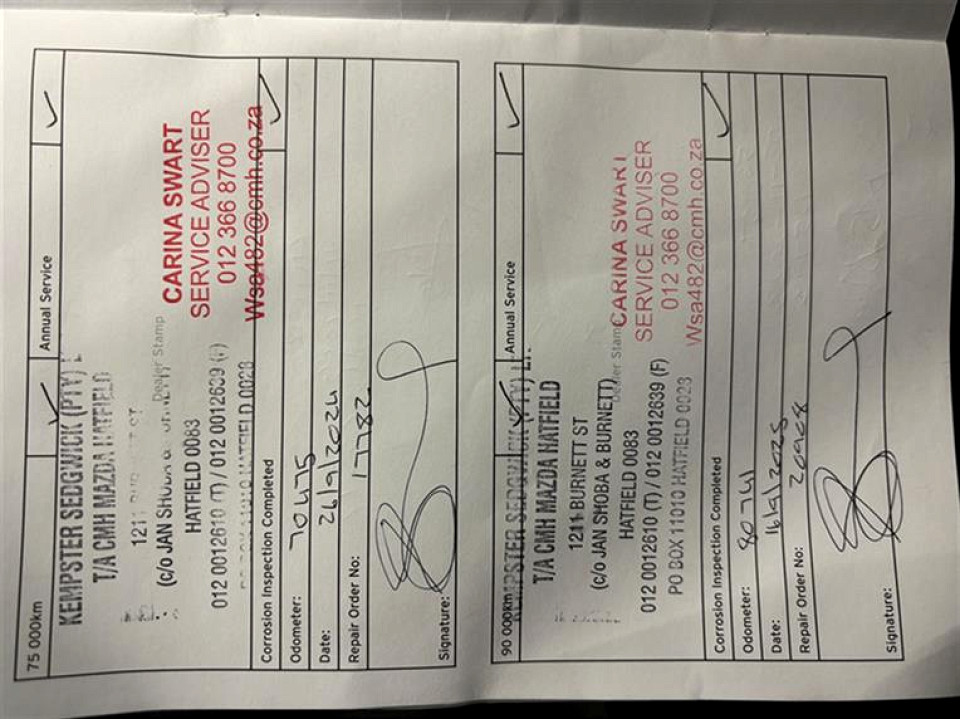 75 000km ✓ Annual Service ✓
KEMPSTER SEDGWICK (PTY)
T/A CMH MAZDA HATFIELD
1211 ST
(c/o JAN SHOBA &
Dealer Stamp
HATFIELD 0083
012 0012610 (T) / 012 0012639 (F)
HATFIELD 0028
CARINA SWART
SERVICE ADVISER
012 366 8700
Wsa482@cmh.co.za
Corrosion Inspection Completed ✓
Odometer: 70475
Date: 26/9/2024
Repair Order No: 17782
Signature:
90 000km ✓ Annual Service ✓
KEMPSTER SEDGWICK (PTY)
T/A CMH MAZDA HATFIELD
1211 BURNETT ST
(c/o JAN SHOBA & BURNETT)
Dealer Stamp
HATFIELD 0083
012 0012610 (T) / 012 0012639 (F)
PO BOX 11010 HATFIELD 0028
CARINA SWART
SERVICE ADVISER
012 366 8700
Wsa482@cmh.co.za
Corrosion Inspection Completed ✓
Odometer: 80741
Date: 16/9/2025
Repair Order No: 20908
Signature: